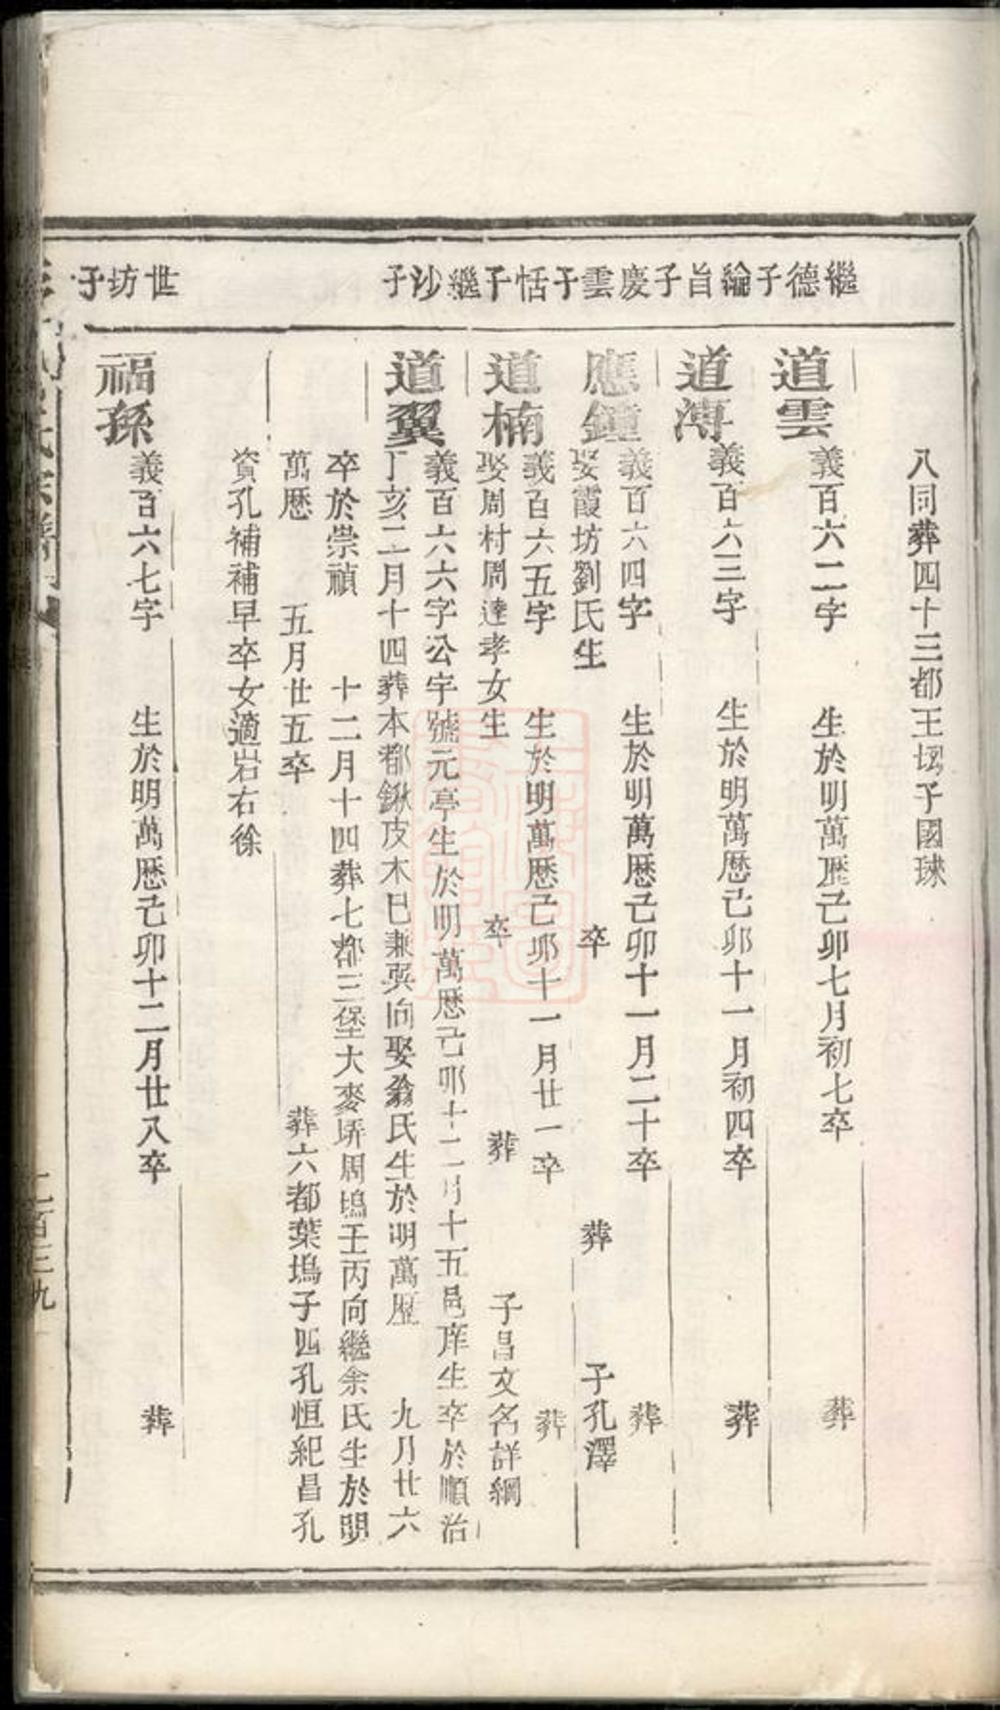 八同葬四十三都王㘭子國琜
繼德子
道雲
義百六二字　生於明萬歷己卯七月初七卒　葬
綸旨子
道溥
義百六三字　生於明萬歷己卯十一月初四卒　葬
慶雲子
應鐘
義百六四字　生於明萬歷己卯十一月二十卒　葬
娶霞坊劉氏生　卒　葬　子孔澤
恬子
道楠
義百六五字　生於明萬歷己卯十一月廿一卒　葬
娶周村周達孝女生　卒　葬　子昌文名詳綱
繼沙子
道翼
義百六六字公字號元亭生於明萬歷己卯十二月十五邑庠生卒於順治
丁亥二月十四葬本都鍬皮木巳兼巽向娶翁氏生於明萬歷　九月廿六
卒於崇禎　十二月十四葬七都三堡大麥塝周塢壬丙向繼余氏生於明
萬歷　五月廿五卒　葬六都葉塢子四孔恒紀昌孔
資孔補補早卒女適岩右徐
世坊子
福孫
義百六七字　生於明萬歷己卯十二月廿八卒　葬
二百三九